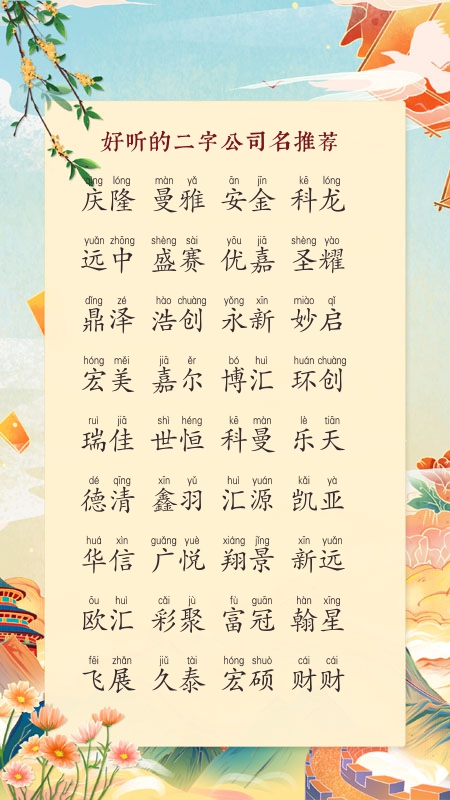 好听的二字公司名推荐
qìng lóng màn yǎ ān jīn kē lóng
庆隆 曼雅 安金 科龙
yuǎn zhōng shèng sài yōu jiā shèng yào
远中 盛赛 优嘉 圣耀
dǐng zé hào chuàng yǒng xīn miào qǐ
鼎泽 浩创 永新 妙启
hóng měi jiā ěr bó huì huán chuàng
宏美 嘉尔 博汇 环创
ruì jiā shì héng kē màn lè tiān
瑞佳 世恒 科曼 乐天
dé qīng xīn yǔ huì yuán kǎi yà
德清 鑫羽 汇源 凯亚
huá xìn guǎng yuè xiáng jǐng xīn yuǎn
华信 广悦 翔景 新远
ōu huì cǎi jù fù guān hàn xīng
欧汇 彩聚 富冠 翰星
fēi zhǎn jiǔ tài hóng shuò cái cái
飞展 久泰 宏硕 财财